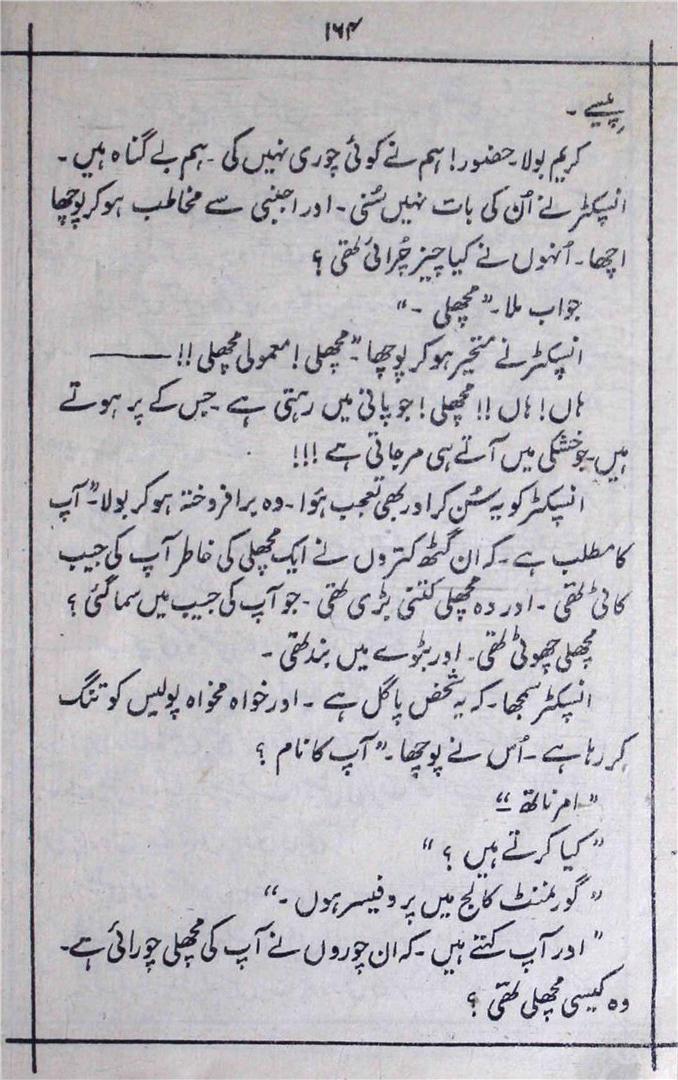 ۱۶۴
پیسے۔
کریم بولا۔ حضور! ہم نے کوئی چوری نہیں کی ۔ ہم بے گناہ ہیں ۔
انسپکٹر نے اُن کی بات نہیں سُنی ۔ اور اجنبی سے مخاطب ہو کر پوچھا
اچھا ۔ اُنہوں نے کیا چیز چُرائی تھی ؟
جواب ملا ۔ ”مچھلی ۔ “
انسپکٹر نے متحیر ہو کر پوچھا ۔ ”مچھلی ! معمولی مچھلی !! ———
ہاں ! ہاں !! مچھلی ! جو پانی میں رہتی ہے ۔ جس کے پر ہوتے
ہیں ۔ جو خشکی میں آتے ہی مر جاتی ہے !!!
انسپکٹر کو یہ سُن کر اور بھی تعجب ہوا ۔ وہ برافروختہ ہو کر بولا ۔ ”آپ
کا مطلب ہے ۔ کہ ان گٹھ کتروں نے ایک مچھلی کی خاطر آپ کی جیب
کاٹی تھی ۔ اور وہ مچھلی کتنی بڑی تھی ۔ جو آپ کی جیب میں سما گئی ؟
مچھلی چھوٹی تھی ۔ اور بٹوے میں بند تھی ۔
انسپکٹر سمجھا ۔ کہ یہ شخص پاگل ہے ۔ اور خواہ مخواہ پولیس کو تنگ
کر رہا ہے ۔ اُس نے پوچھا ۔ ”آپ کا نام ؟
”امر ناتھ “
”کیا کرتے ہیں ؟ “
”گورنمنٹ کالج میں پروفیسر ہوں ۔ “
”اور آپ کہتے ہیں ۔ کہ ان چوروں نے آپ کی مچھلی چورائی ہے ۔
وہ کیسی مچھلی تھی ؟